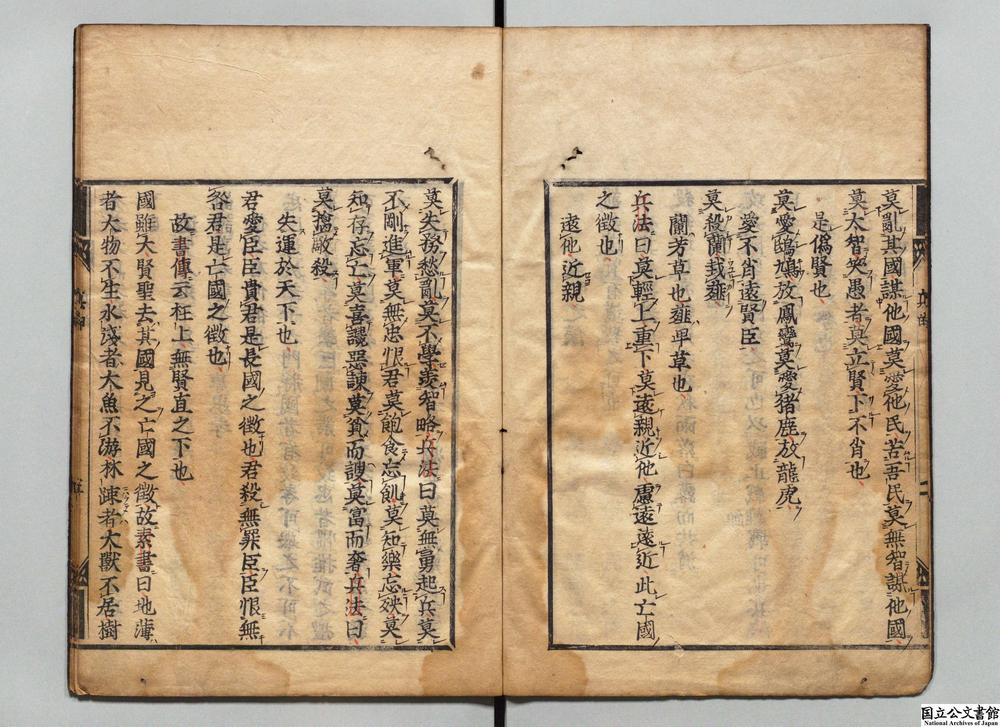 莫亂其國謀他國莫愛他民苦吾民莫無智謀他國
莫太智笑愚者莫立賢下不肖也
是僞賢也
莫愛鴟鳩放鳳鸞莫愛猪鹿放龍虎
愛不肖遠賢臣
莫殺蘭栽薤
蘭芳草也薤卑草也
兵法曰莫輕上重下莫遠親近他慮遠遠近此亡國
之徴也
遠他近親
莫失務愁亂莫不學羨智略兵法曰莫無勇起兵莫
不剛進軍莫無忠恨君莫飽食忘飢莫知樂忘殃莫
知存忘亡莫喜讒惡諫莫貧而諛莫富而奢兵法曰
莫擒敵殺
失運於天下也
君愛臣臣貴君是長國之徴也君殺無罪臣臣恨無
咎君是亡國之徴也
故書傳云在上無賢直之下也
國雖大賢聖去其國見之亡國之徴故素書曰地薄
者大物不生水淺者大魚不游林疎者大獸不居樹
国立公文書館
National Archives of Japan